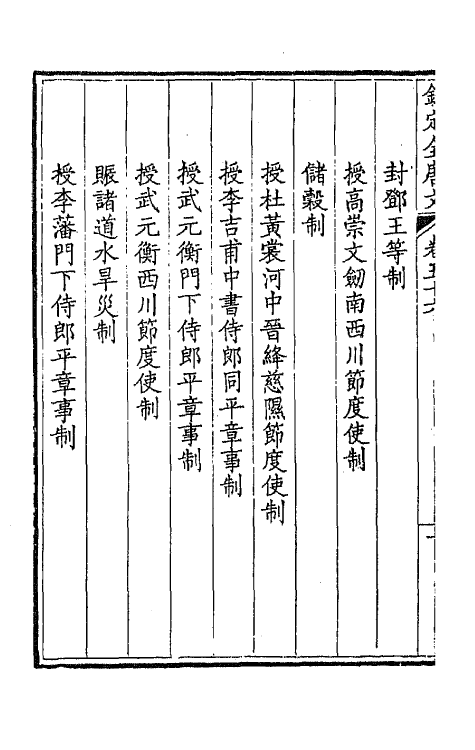 欽定全唐文 卷五十六
封鄧王等制
授高崇文劒南西川節度使制
儲穀制
授杜黃裳河中晉絳慈隰節度使制
授李吉甫中書侍郎同平章事制
授武元衡門下侍郎平章事制
授武元衡西川節度使制
賑諸道水旱災制
授李藩門下侍郎平章事制